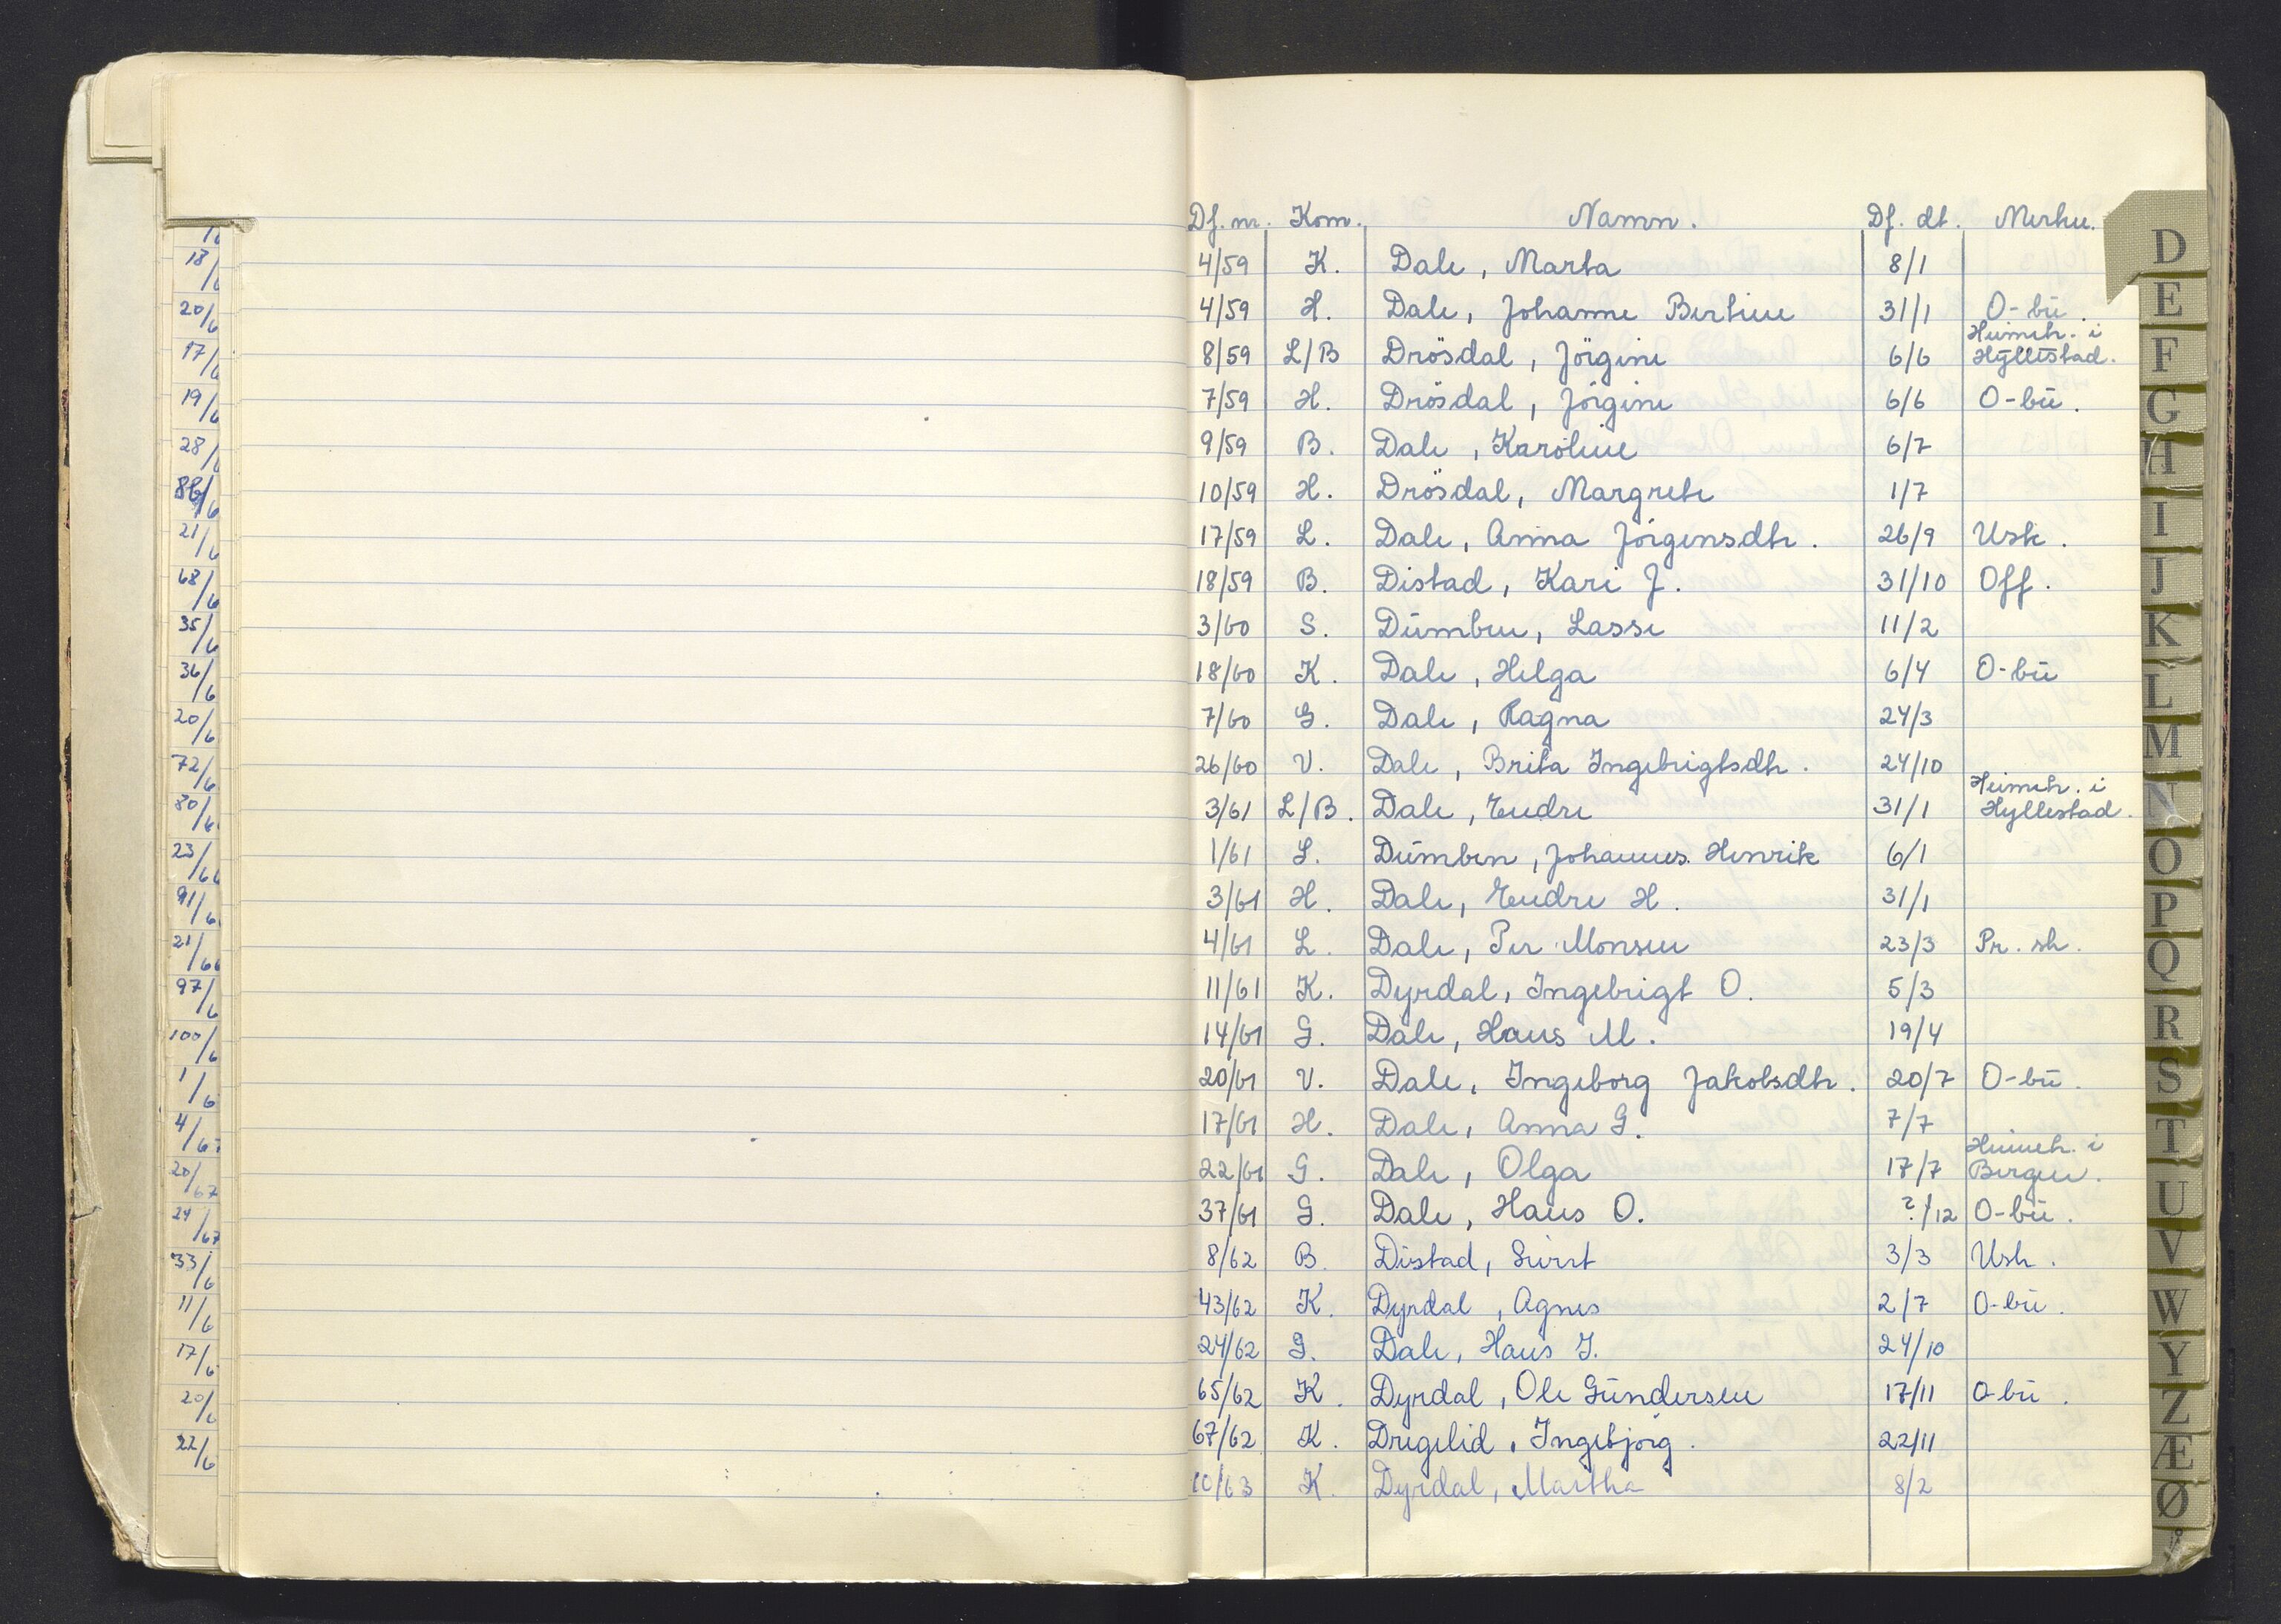 Df. nr. Kom. Namn. Df. dt. Merkn.
4/59 K. Dale, Marta 8/1
4/59 H. Dale, Johanne Bertine 31/1 O-bu.
8/59 L/B Drösdal, Jörgine 6/6 Heimeh. i Hyllestad.
7/59 H. Drösdal, Jörgine 6/6 O-bu.
9/59 B. Dale, Karoline 6/7
10/59 H. Drösdal, Margrete 1/7
17/59 L. Dale, Anna Jörgensdtr. 26/9 Usk.
18/59 B. Distad, Kari J. 31/10 Off.
3/60 S. Dumben, Lasse 11/2
18/60 K. Dale, Helga 6/4 O-bu
7/60 G. Dale, Ragna 24/3
26/60 V. Dale, Brita Ingebrigtsdtr. 24/10
3/61 L/B. Dale, Endre 31/1 Heimeh. i Hyllestad.
1/61 S. Dumben, Johannes Henrik 6/1
3/61 H. Dale, Endre H. 31/1
4/61 L. Dale, Per Monsen 23/3 Pr. sk.
11/61 K. Dyrdal, Ingebrigt O. 5/3
14/61 G. Dale, Hans M. 19/4
20/61 V. Dale, Ingeborg Jakobsdtr. 20/7 O-bu.
17/61 H. Dale, Anna G. 7/7
22/61 G. Dale, Olga 17/7 Heimeh. i Bergen.
37/61 G. Dale, Hans O. ?/12 O-bu.
8/62 B. Distad, Sivert 3/3 Usk.
43/62 K. Dyrdal, Agnes 2/7 O-bu.
24/62 G. Dale, Hans J. 24/10
65/62 K. Dyrdal, Ole Gundersen 17/11 O-bu.
67/62 K. Dregelid, Ingebjörg. 22/11
10/63 K. Dyrdal, Martha 8/2
D
E
F
G
H
I
J
K
L
M
N
O
P
Q
R
S
T
U
V
W
Y
Z
Æ
Ø
18/
20/6
17/6
19/6
28/
21/6
68/6
35/6
36/6
20/6
72/6
80/6
23/66
91/6
21/66
97/6
100/6
1/6
4/67
20/67
24/67
33/6
11/6
17/6
20/6
22/6